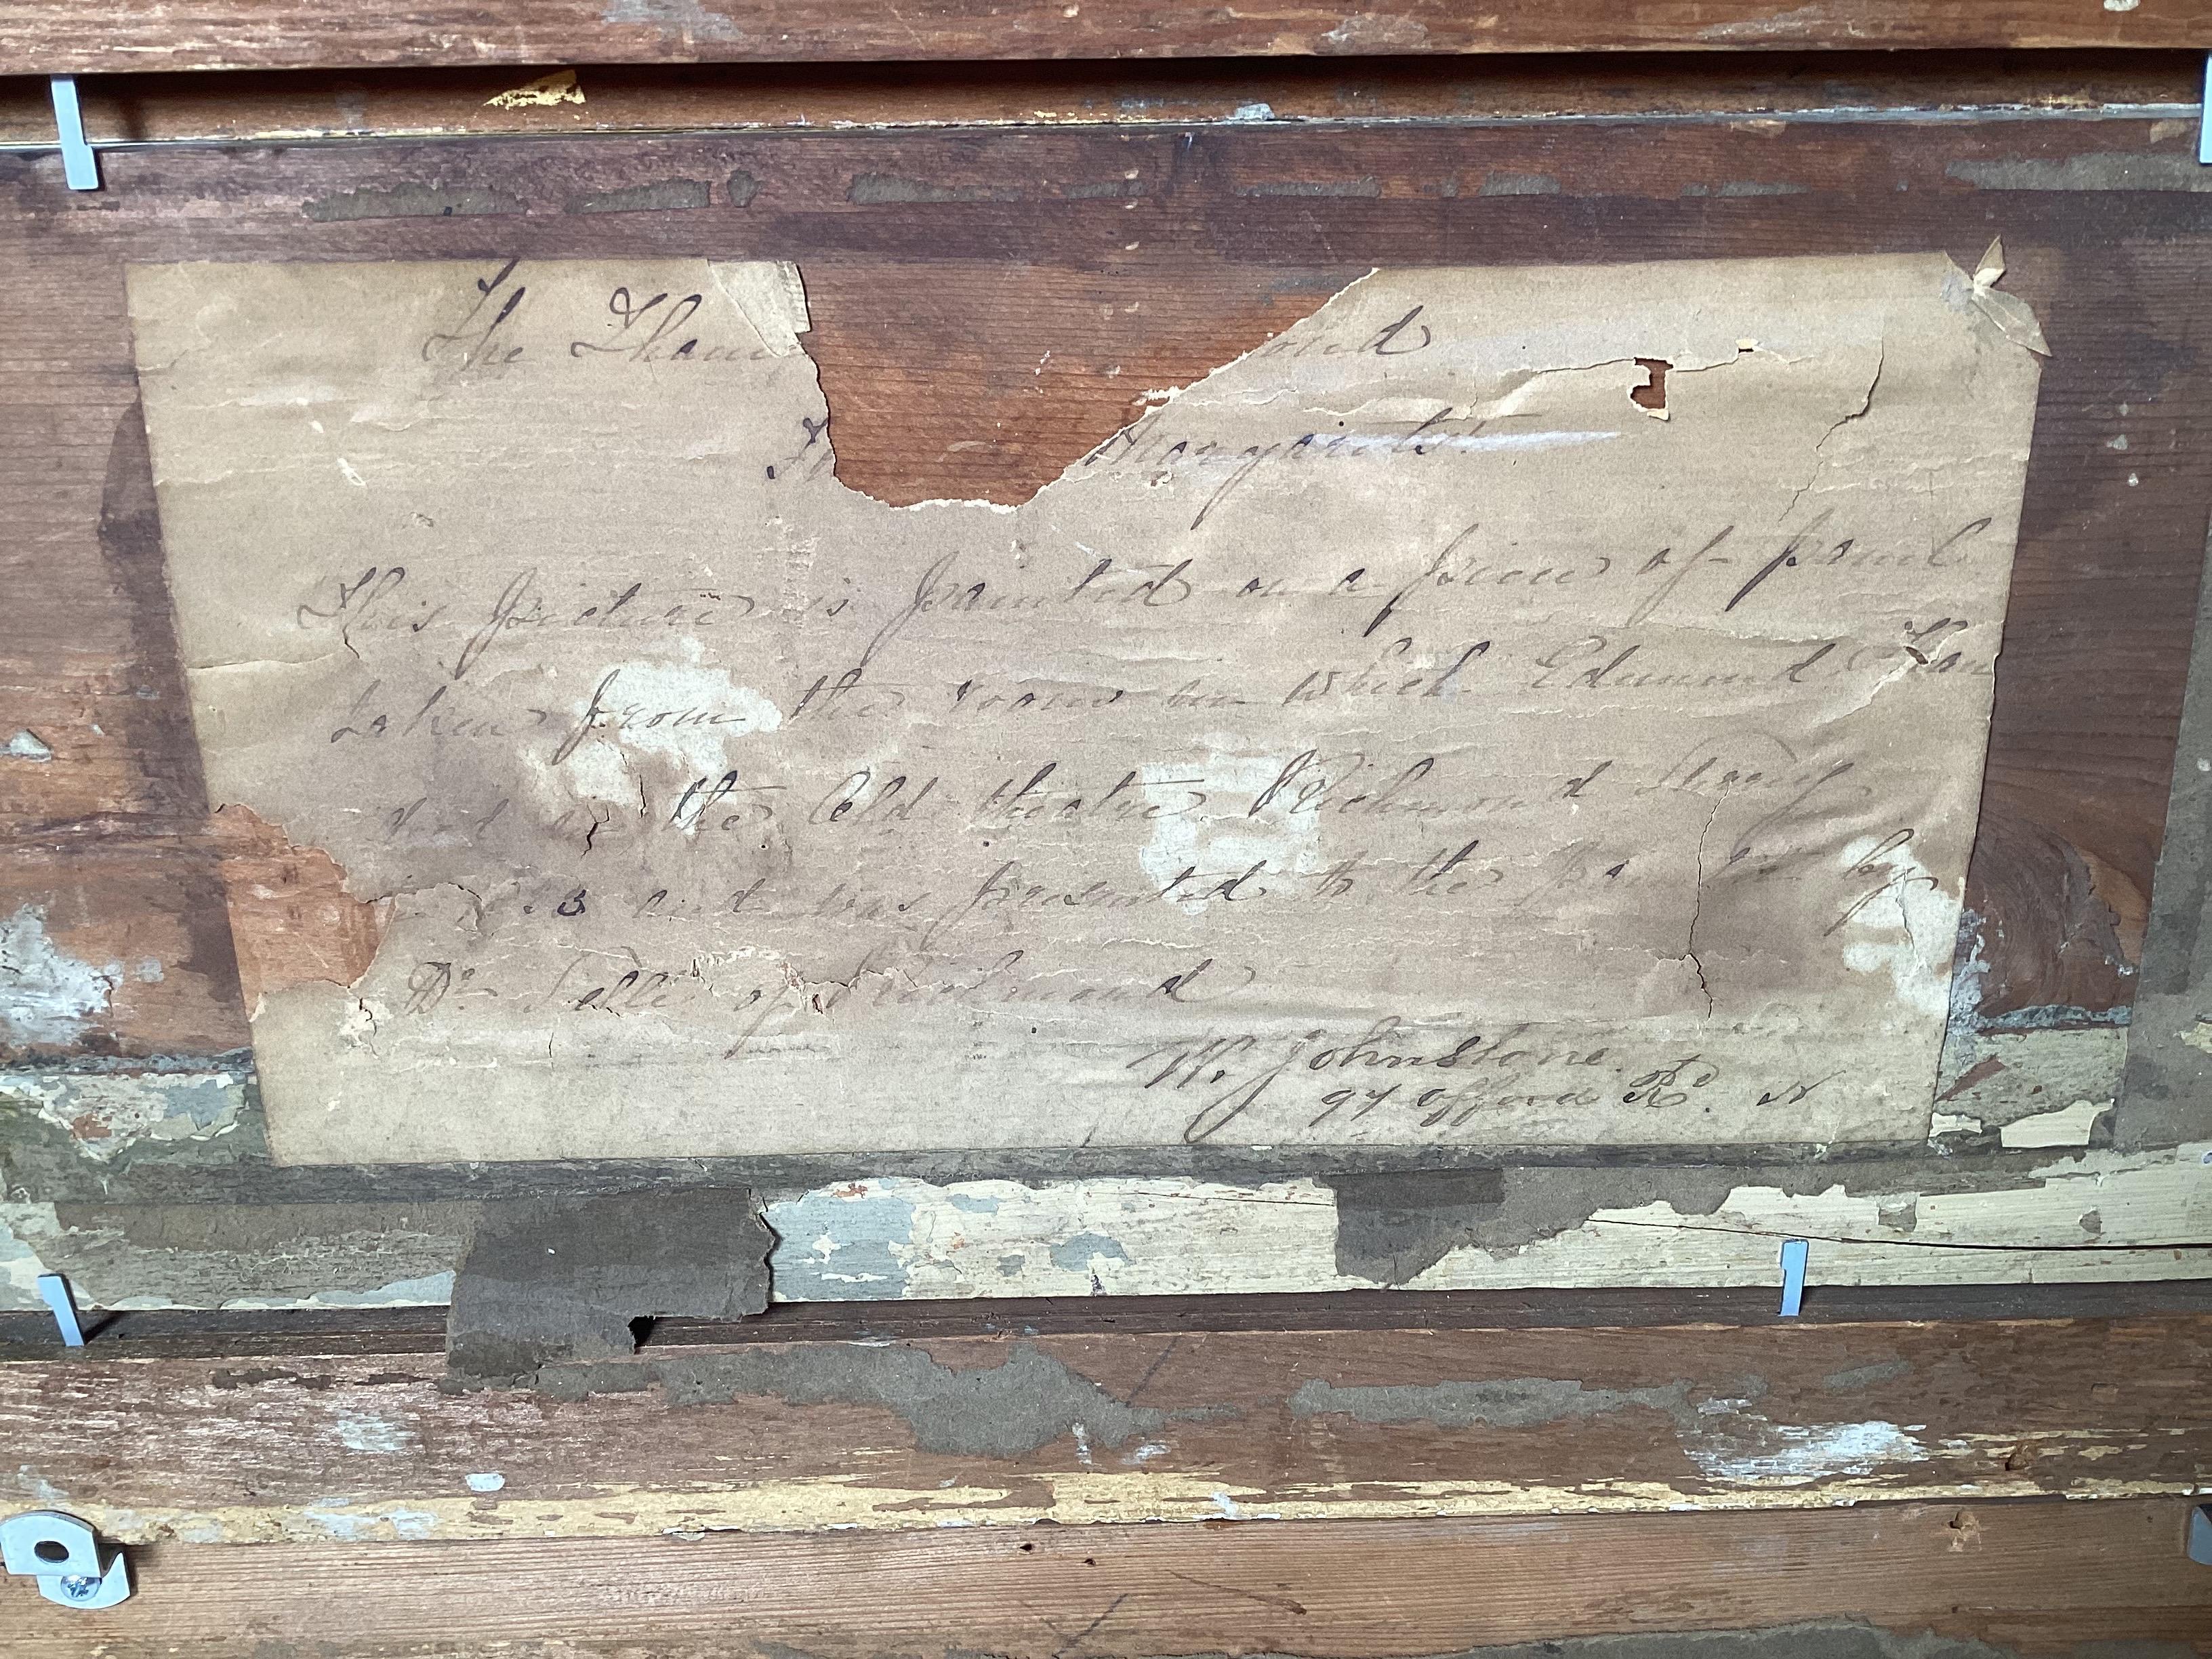 The Tham
ond
Fr
Margarets.
This picture is painted on a piece of panel
taken from the room in which Edmund Kean
died in the Old theatre Richmond Surrey
and was presented to the by
Dr. Selle of Richmond
W. Johnstone.
97 Offord Rd. N